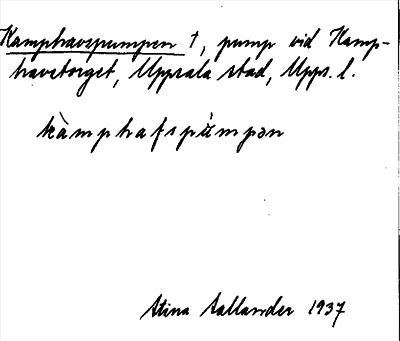 Kamphavspumpen †, pump vid Kamp-
havetorget, Uppsala stad, Upps. l.
kàmphafspùmpən
Stina Sallander 1937